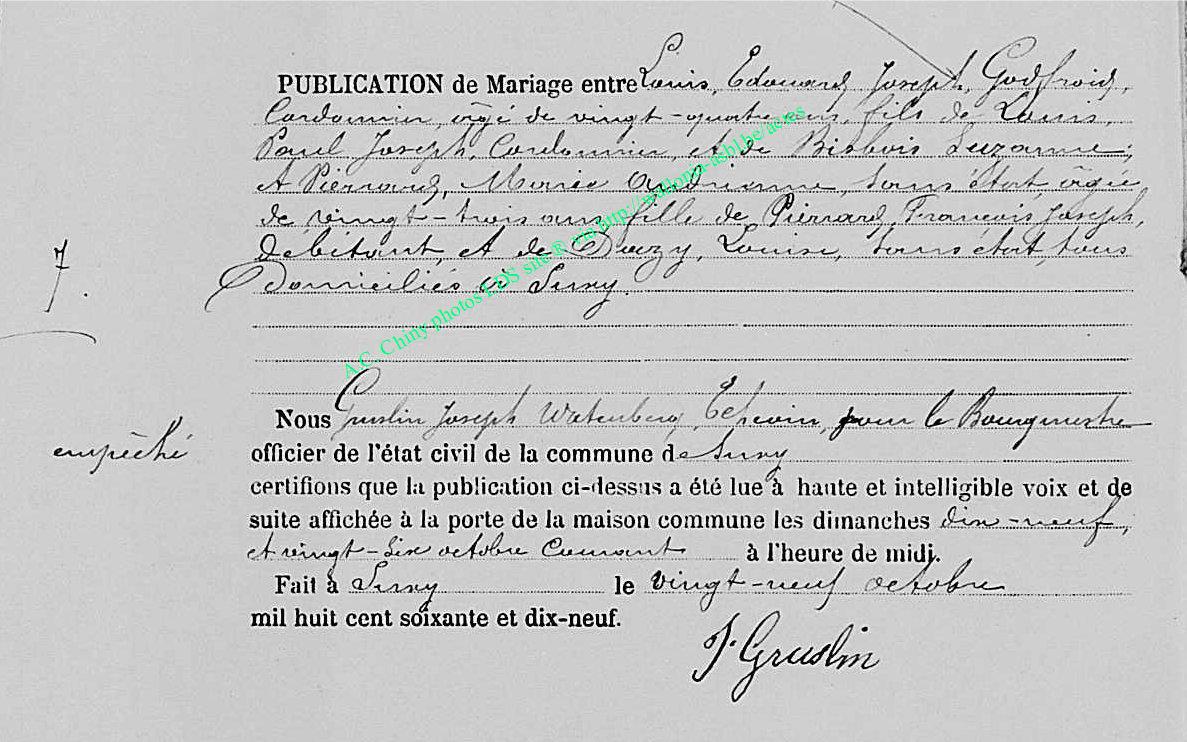 PUBLICATION de Mariage entre Louis, Edouard Joseph, Godfroid,
Cordonnier, âgé de vingt-quatre ans, fils de Louis,
Paul Joseph, Cordonnier, et de Bisbois Suzanne;
et Pierrard, Marie Adrienne, sans état, âgée
de vingt-trois ans, fille de Pierrard, François Joseph,
débitant, et de Douzy, Louise, sans état, tous
7. Domiciliés à Suxy.
A.C. Chiny photos EDS site ® via http://wallonia-asbl.be/actes
Nous Gruslin Joseph Watenberg, Echevin, pour le Bourgmestre
empêché officier de l'état civil de la commune de Suxy
certifions que la publication ci-dessus a été lue à haute et intelligible voix et de
suite affichée à la porte de la maison commune les dimanches dix-neuf,
et vingt-six octobre Courant à l'heure de midi.
Fait à Suxy le vingt-neuf octobre
mil huit cent soixante et dix-neuf.
J. Gruslin